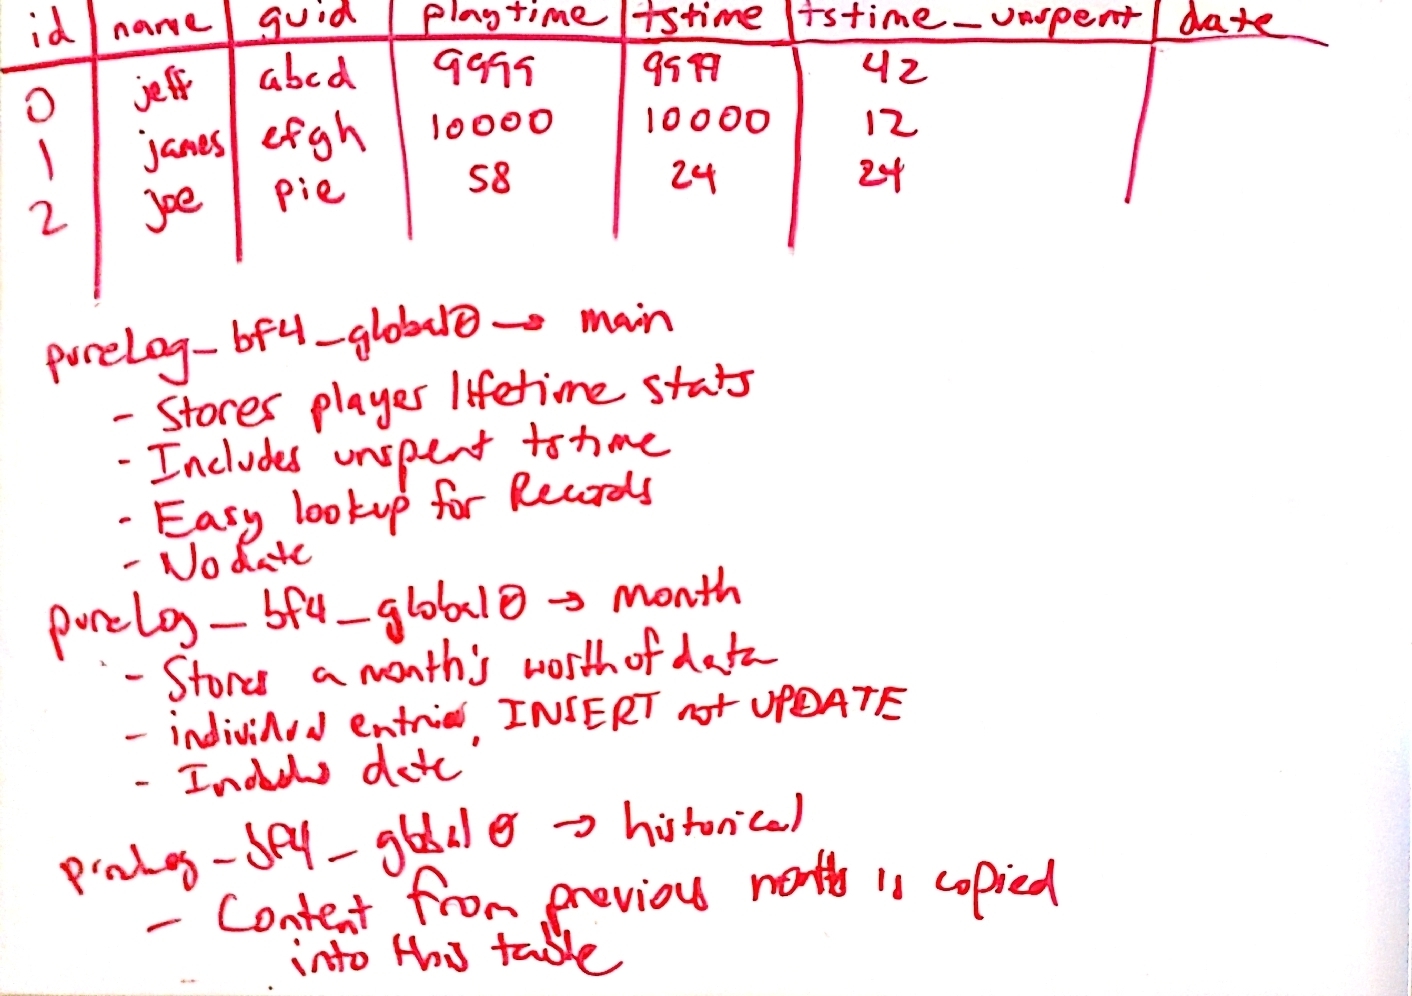 id name guid playtime tstime tstime_unspent date
0 jeff abcd 9999 9999 42
1 james efgh 10000 10000 12
2 joe pie 58 24 24
pureLog_bf4_global0 → main
- Stores player lifetime stats
- Includes unspent tstime
- Easy lookup for Records
- No date
pureLog_bf4_global0 → month
- Stores a month's worth of data
- individual entries, INSERT not UPDATE
- Includes date
pureLog_bf4_global0 → historical
- Content from previous months is copied
into this table